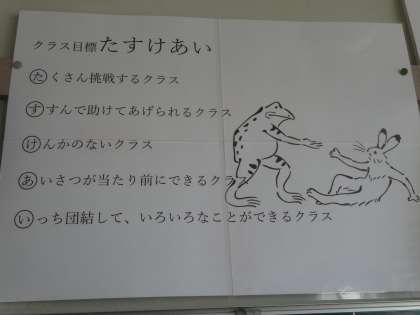 クラス目標たすけあい
たくさん挑戦するクラス
すすんで助けてあげられるクラス
けんかのないクラス
あいさつが当たり前にできるクラス
いっち団結して、いろいろなことができるクラス